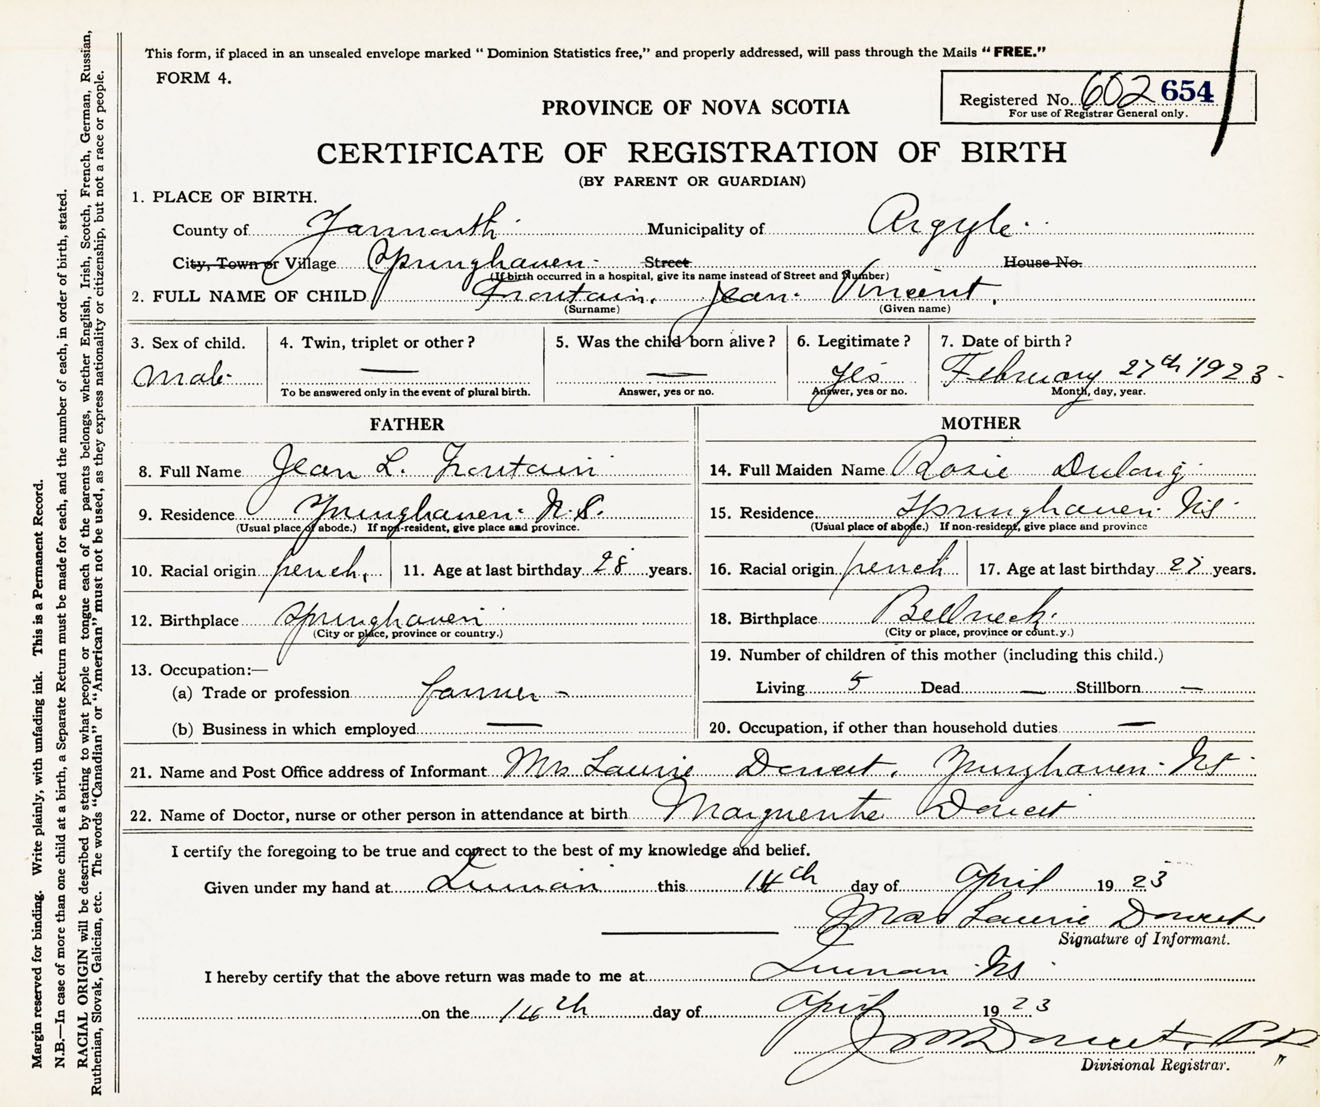 This form, if placed in an unsealed envelope marked " Dominion Statistics free," and properly addressed, will pass through the Mails " FREE."
FORM 4.
Registered No. 602 654
For use of Registrar General only.
PROVINCE OF NOVA SCOTIA
CERTIFICATE OF REGISTRATION OF BIRTH
(BY PARENT OR GUARDIAN)
1. PLACE OF BIRTH.
County of Yarmouth Municipality of Argyle
City, Town or Village Springhaven Street House No.
(If birth occurred in a hospital, give its name instead of Street and Number)
2. FULL NAME OF CHILD Frontain, Jean Vincent.
(Surname) (Given name)
3. Sex of child. 4. Twin, triplet or other ? 5. Was the child born alive ? 6. Legitimate ? 7. Date of birth ?
Male — — Yes February 27th 1923
To be answered only in the event of plural birth. Answer, yes or no. Answer, yes or no. Month, day, year.
FATHER MOTHER
8. Full Name Jean L. Frontain 14. Full Maiden Name Rosie Dulong
9. Residence Springhaven N.S. 15. Residence Springhaven NS
(Usual place of abode.) If non-resident, give place and province. (Usual place of abode.) If non-resident, give place and province
10. Racial origin french, 11. Age at last birthday 28 years. 16. Racial origin french 17. Age at last birthday 27 years.
12. Birthplace Springhaven 18. Birthplace Bellneck.
(City or place, province or country.) (City or place, province or count.y.)
13. Occupation:— 19. Number of children of this mother (including this child.)
(a) Trade or profession farmer - Living 5 Dead — Stillborn —
(b) Business in which employed — 20. Occupation, if other than household duties —
21. Name and Post Office address of Informant Mrs Laurie Doucet. Springhaven NS
22. Name of Doctor, nurse or other person in attendance at birth Marguerite Doucet
I certify the foregoing to be true and correct to the best of my knowledge and belief.
Given under my hand at this 14th day of April 1923
Mrs Laurie Doucet
Signature of Informant.
I hereby certify that the above return was made to me at NS
on the 14th day of April 1923
Doucet
Divisional Registrar.
Margin reserved for binding. Write plainly, with unfading ink. This is a Permanent Record.
N.B.—In case of more than one child at a birth, a Separate Return must be made for each, and the number of each, in order of birth, stated.
RACIAL ORIGIN will be described by stating to what people or tongue each of the parents belongs, whether English, Irish, Scotch, French, German, Russian,
Ruthenian, Slovak, Galician, etc. The words "Canadian" or "American" must not be used, as they express nationality or citizenship, but not a race or people.